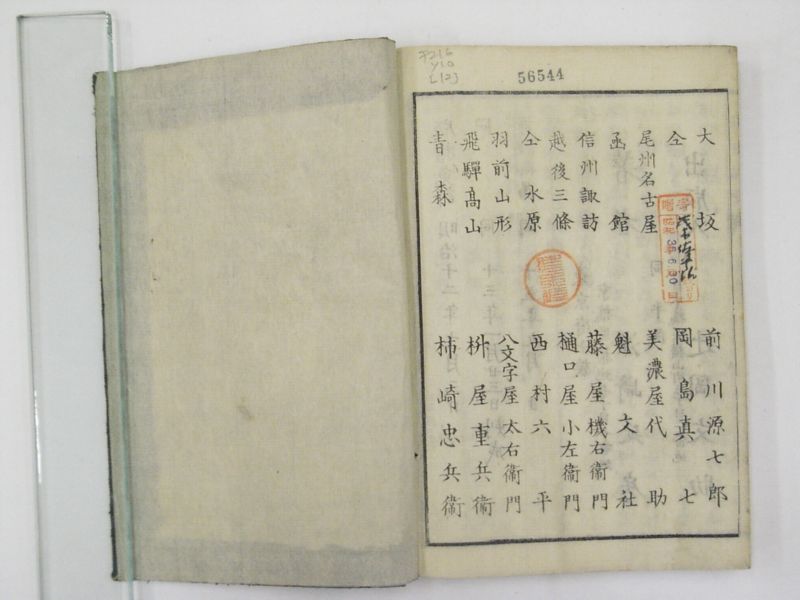 56544
大坂 前川源七郎
仝 岡島真七
尾州名古屋 美濃屋代助
函館 魁文社
信州諏訪 藤屋機右衞門
越後三條 樋口屋小左衞門
仝水原 西村六平
羽前山形 八文字屋太右衞門
飛驒髙山 桝屋重兵衞
青森 柿崎忠兵衞